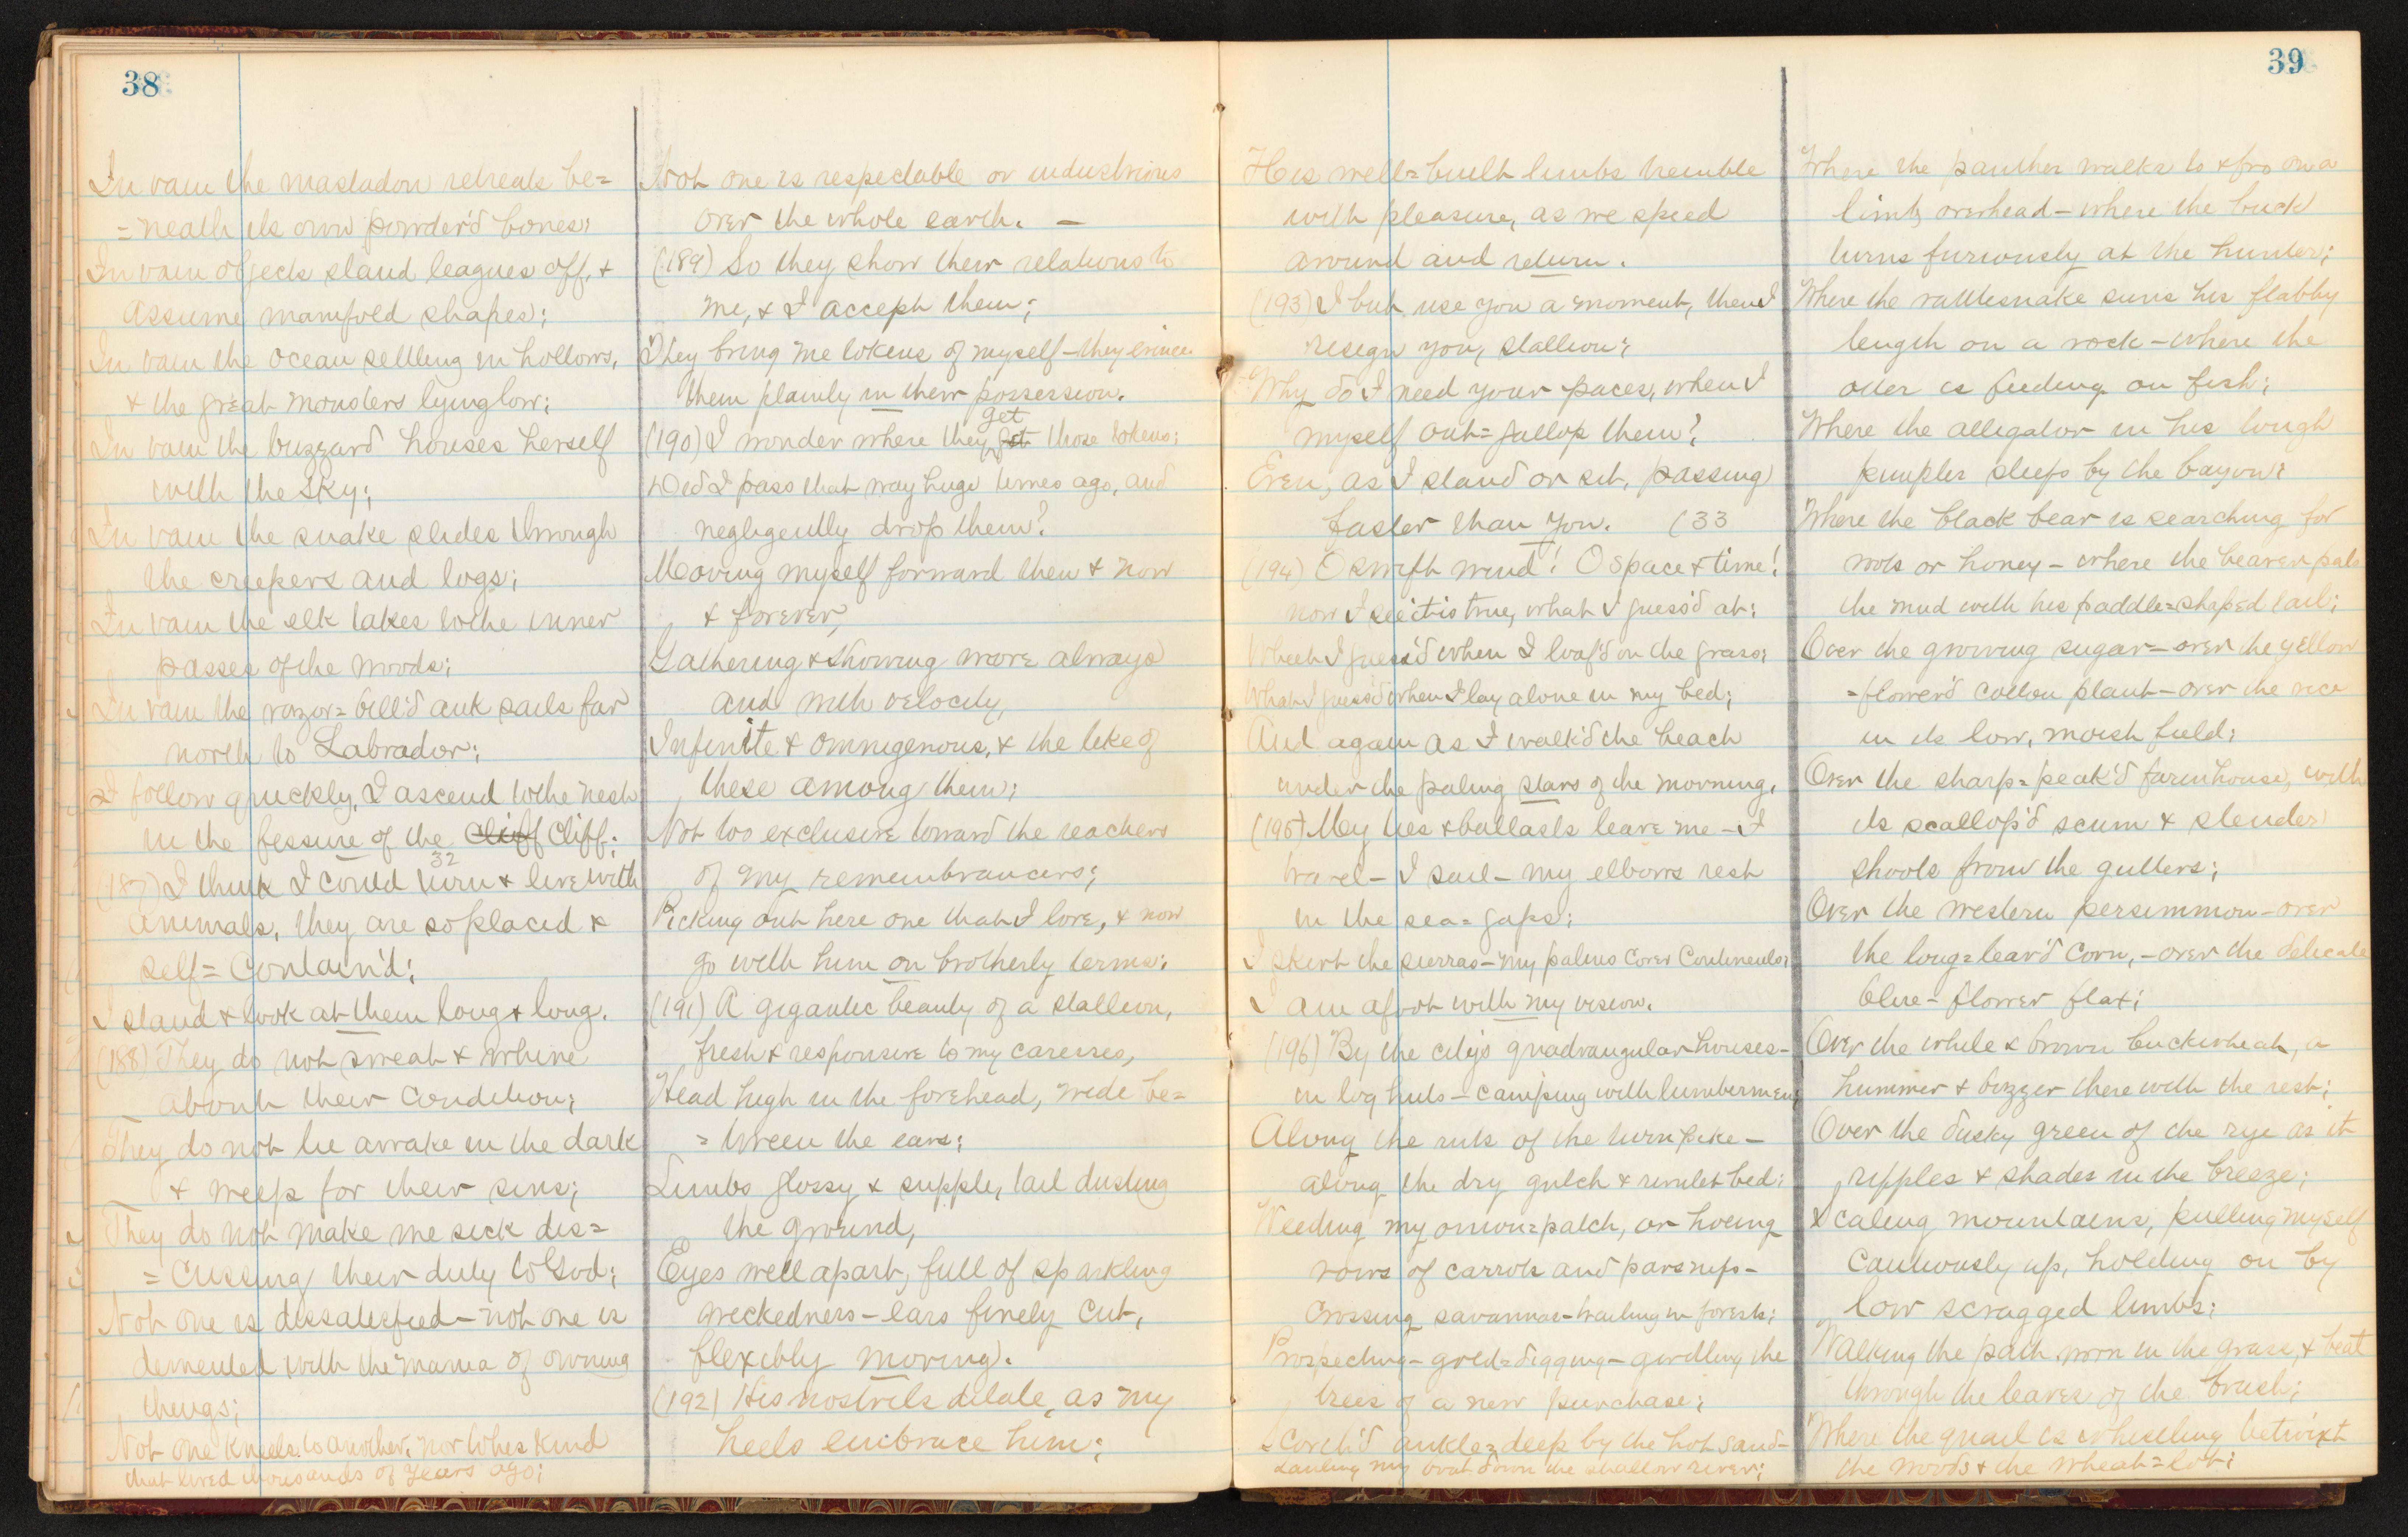 38
In vain the mastadon retreats be=
=neath its own powder'd bones;
In vain objects stand leagues off, &
assume manifold shapes;
In vain the ocean settling in hollows,
& the great monsters lying low;
In vain the buzzard houses herself
with the sky;
In vain the snake slides through
the creepers and logs;
In vain the elk takes to the inner
passes of the woods;
In vain the razor=bill'd auk sails far
north to Labrador;
I follow quickly, I ascend to the nest
in the fissure of the cliff Cliff;
32
(187) I think I could turn & live with
animals, they are so placid &
self=Contain'd;
I stand & look at them long & long.
(188) They do not sweat & whine
about their Condition;
They do not lie awake in the dark
& weep for their sins;
They do not make me sick dis=
=cussing their duty to God;
Not one is dissatisfied – not one is
demented with the mania of owning
things;
Not one kneels to another, nor to his kind
that lived thousands of years ago;
Not one is respectable or industrious
over the whole earth. –
(189) So they show their relations to
me, & I accept them;
They bring me tokens of myself – they evince
them plainly in their possession.
get
(190) I wonder where they got those tokens;
Did I pass that way huge times ago, and
negligently drop them?
Moving myself forward then & now
& forever,
Gathering & showing more always
and with velocity,
Infinite & omnigenous, & the like of
these among them;
Not too exclusive toward the reachers
of my remembrancers;
Picking out here one that I love, & now
go with him on brotherly terms.
(191) A gigantic beauty of a stallion,
fresh & responsive to my caresses,
Head high in the forehead, wide be=
=tween the ears;
Limbs glossy & supple, tail dusting
the ground,
Eyes well apart, full of sparkling
wickedness – ears finely cut,
flexibly moving.
(192) His nostrils dilate, as my
heels embrace him;
39
His well=built limbs tremble
with pleasure, as we speed
around and return.
(193) I but use you a moment, then I
resign you, stallion;
Why do I need your paces, when I
myself out=gallop them?
Even, as I stand or sit, passing
faster than you. (33
(194) O swift wind! O space & time!
now I see it is true, what I guess'd at;
What I guess'd when I loaf'd on the grass;
What I guess'd when I lay alone in my bed;
And again as I walk'd the beach
under the paling stars of the morning.
(195) My ties & ballasts leave me – I
travel – I sail – my elbows rest
in the sea=gaps;
I skirt the sierras – my palms cover Continents;
I am afoot with my vision.
(196) By the city's quadrangular houses –
in log huts – camping with lumbermen;
Along the ruts of the turnpike –
along the dry gulch & rivulet bed;
Weeding my onion=patch, or hoeing
rows of carrots and parsnips –
crossing savannas – trailing in forests;
Prospecting – gold=digging – girdling the
trees of a new purchase;
Scorch'd ankle=deep by the hot sand –
hauling my boat down the shallow river;
Where the panther walks to & fro on a
limb overhead – where the buck
turns furiously at the hunter;
Where the rattlesnake suns his flabby
length on a rock – where the
otter is feeding on fish;
Where the alligator in his tough
pimples sleeps by the bayou;
Where the black bear is searching for
roots or honey – where the beaver pats
the mud with his paddle=shaped tail;
Over the growing sugar – over the yellow
=flower'd cotton plant – over the rice
in its low, moist field;
Over the sharp=peak'd farmhouse, with
its scallop'd scum & slender
shoots from the gutters;
Over the western persimmon – over
the long=leav'd corn, – over the delicate
blue-flower flax;
Over the white & brown buckwheat, a
hummer & buzzer there with the rest;
Over the dusky green of the rye as it
ripples & shades in the breeze;
Scaling mountains, pulling myself
cautiously up, holding on by
low scragged limbs;
Walking the path worn in the grass, & beat
through the leaves of the brush;
Where the quail is whistling betwixt
the woods & the wheat=lot;